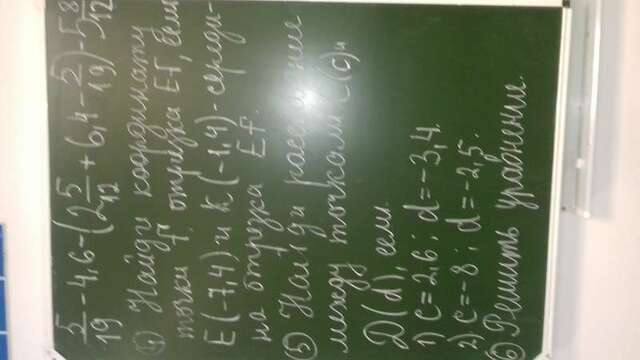 5/19 - 4,6 - (2 5/12 + 6,4 - 5/19) - 5 8/12
4) Найди координату
точки f, отрезка Ef, если
E(-7,4) и K(-1,4) - середи-
на отрезка Ef.
5) Найди расстояние
между точками C(c) и
D(d), если
1) c=2,6; d=-3,4.
2) c=-8; d=-2,5.
6) Решить уравнение.